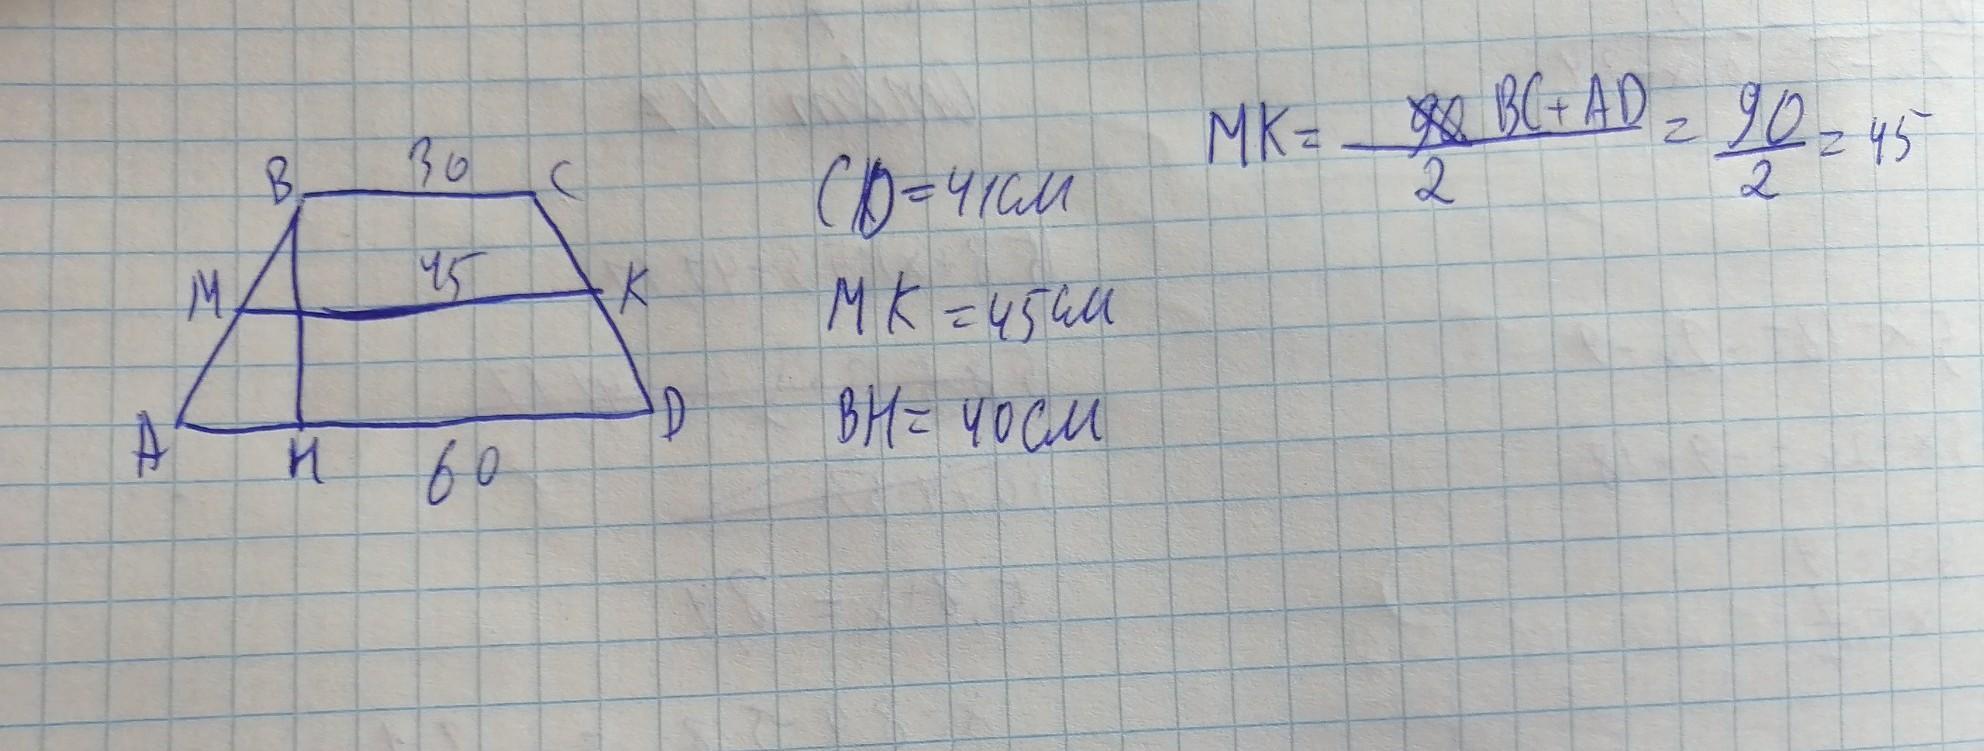 B 30 C
M 45 K
A H 60 D
CD=41см
MK=45см
BH=40см
MK= BC+AD / 2 = 90 / 2 = 45